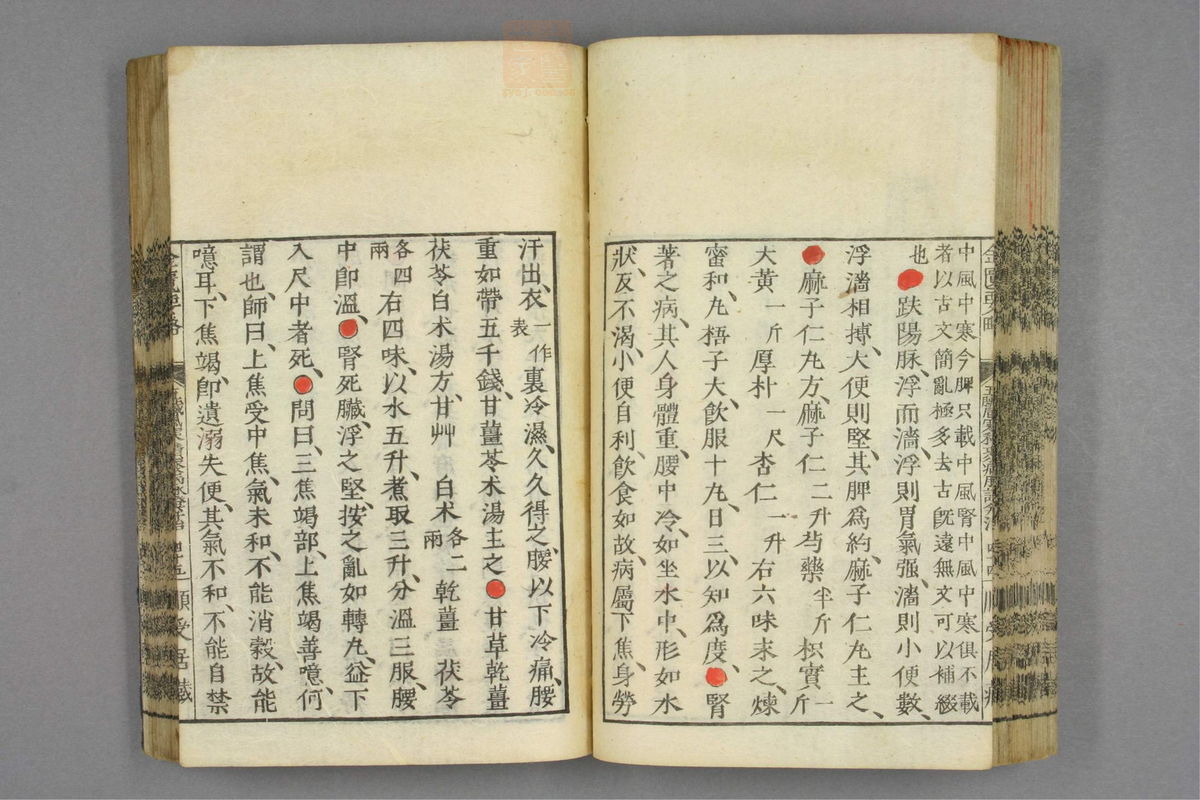 中風中寒今脾只載中風腎中風中寒俱不載
者以古文簡亂極多去古既遠無文可以補綴
也
趺陽脉、浮而濇、浮則胃氣强、濇則小便數、
浮濇相搏、大便則堅、其脾爲約、麻子仁丸主之、
麻子仁丸方、麻子仁二升芍藥半斤枳實一斤
大黃一斤厚朴一尺杏仁一升右六味末之、煉
蜜和、丸梧子大、飮服十丸、日三、以知爲度、腎
著之病、其人身體重、腰中冷、如坐水中、形如水
狀、反不渴、小便自利、飮食如故、病屬下焦、身勞
汗出、衣一作表裏冷濕、久久得之、腰以下冷痛、腰
重如帶五千錢、甘薑苓术湯主之 甘草乾薑
茯苓白术湯方、甘艸 白术各二兩 乾薑 茯苓
各四兩 右四味、以水五升、煮取三升、分溫三服、腰
中卽溫、腎死臟、浮之堅、按之亂如轉丸、益下
入尺中者死、問曰、三焦竭部、上焦竭善噫、何
謂也、師曰、上焦受中焦、氣未和、不能消穀、故能
噫耳、下焦竭、卽遺溺失便、其氣不和、不能自禁